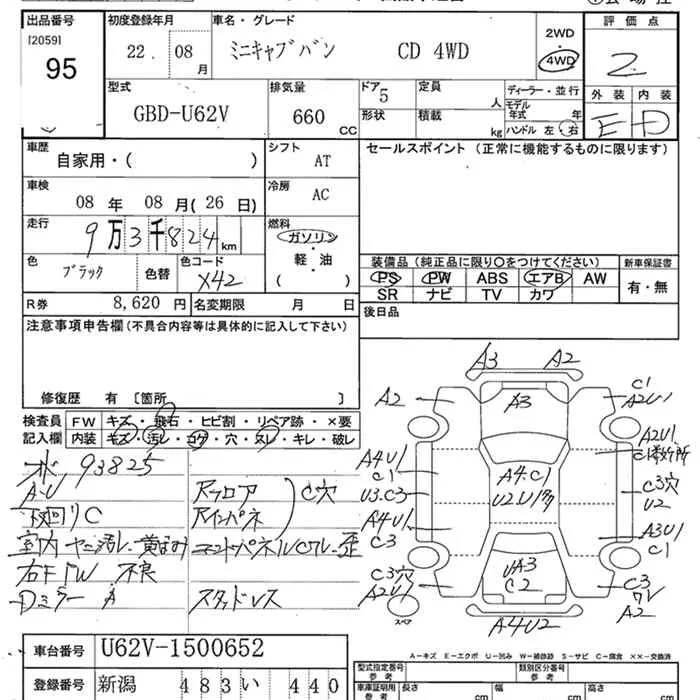 出品番号
[2059]
95
初度登録年月
22. 08 月
車名・グレード
ミニキャブバン CD 4WD
2WD
4WD
評価点
2
外装 内装
E D
型式
GBD-U62V
排気量
660 CC
ドア
5
形状
定員
人
積載
kg
ディーラー・並行
モデル年式 年
ハンドル 左・右
車歴
自家用・( )
シフト
AT
セールスポイント (正常に機能するものに限ります)
車検
08 年 08 月(26 日)
冷房
AC
走行
9万3千824km
燃料
ガソリン
軽・油
( )
色
ブラック
色替
色コード
X42
装備品(純正品に限り○をつけてください)
PS PW ABS エアB AW
SR ナビ TV カワ
新車保証書
有・無
R券 8,620 円
名変期限 月 日
後日品
注意事項申告欄(不具合内容等は具体的に記入して下さい)
修復歴 有 〔箇所 〕
検査員記入欄
FW キズ・飛石・ヒビ割・リペア跡・×要
内装 キズ・汚レ・コゲ・穴・スレ・キレ・破レ
93825
A・U
下回りC
室内ヤニ汚レ・黄ばみ
右F FW 不良
Dミラー A
Rフロア
Rインパネ
C穴
エンドパネルCワレ・歪
スタッドレス
A3 A2
A2 A3 C1
A2U1
A4U1
C1
U3.C3
A4U1
C3
C3穴
A2U1
スペア
A4.C1
A2U1
C1
C3穴
U2
A3U1
C1
UA3
C2
C3
ワレ
A2
A4U2
A－キズ E－エクボ U－凹み W－補修跡 S－サビ C－腐食 ××－交換済
車台番号 U62V-1500652
登録番号 新潟 483 い 440
型式指定番号
参考
類別区分番号
参考
車庫証明用
参考
長さ cm
幅 cm
高さ cm